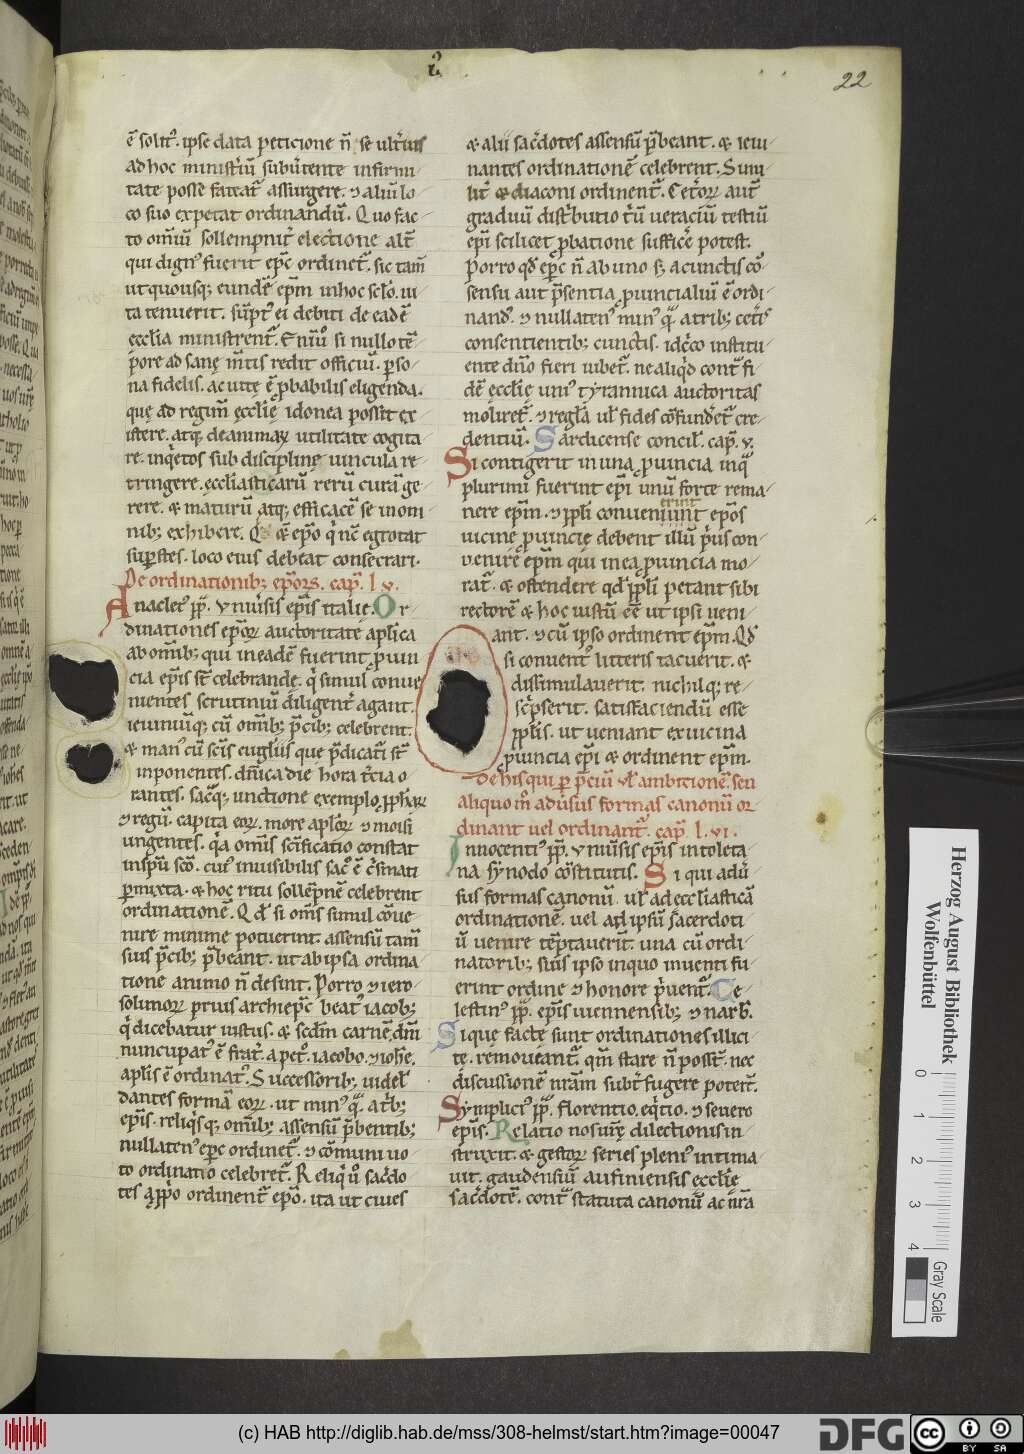 i
22
ē solit᷒. ipse data peticione n̄ se ult̄ius
ad hoc minist̄iū subūtente infirmi-
tate posse fateat̄ assurgere. ⁊ aliū lo-
co suo expetat ordinandū. Quo fac-
to om̄iū sollempnit̄ electione alt̄
qui dign᷒ fuerit ep̄c ordinet̄. sic tam̄
ut quousq; eundē ep̄m in hoc sclo. ui-
ta tenuerit. sūpt᷒ ei debiti de eadē
ecclia ministrent̄. Eniū si nullo tē-
pore ad sanę m̄tis redit officiū. pso-
na fidelis. ac uitę ē pbabilis eligenda.
quę ad regim̄ ęcclię idonea possit ex-
istere. atq; de animaꝝ utilitate cogita-
re. inqetos sub disciplinę uincula re-
tringere. eccliasticarū rerū curā ge-
rere. & maturū atq; efficacē se in om-
nib; exhibere. Q & ep̄o q nc̄ egrotat
supstes. loco eius debeat consecrari.
De ordinationib; ep̄orꝝ. cap. l v.
Anaclet᷒ pp̄. Vniūsis ep̄is italię. Or-
dinationes ep̄oꝝ auctoritate aplica
ab om̄ib; qui in eadē fuerint puin-
cia ep̄is st̄ celebrande. q simul conue-
nientes scrutiniū diligent̄ agant.
ieiuniūq; cū om̄ib; p̄cib; celebrent.
& man᷒ cū scis euglūs que p̄dicati st̄
inponentes. dn̄ica die hora t̄cia o-
rantes. sac̄q; unctione exemplo pphaꝝ
⁊ regū. capita eoꝝ. more aploꝝ ⁊ moisi
ungentes. q̄a om̄is sc̄ificatio constat
in sp̄u sc̄o. cui᷒ inuisibilis sac̄ ē c̄smati
p̄mixta. & hoc ritu sollēpnē celebrent
ordinationē. Qd̄ si om̄s simul cōue-
nire minime potuerint. assensū tam̄
suis p̄cib; p̄beant. ut ab ipsa ordina-
tione animo n̄ desint. Porro ⁊ iero-
solimoꝝ prius archiep̄c beat᷒ iacob;
q dicebatur iustus. & scdm carnē dn̄i
nuncupat᷒ ē frat̄. a pet̄o. iacobo. ⁊ iohē.
aplis ē ordinat᷒. Successorib; uidel̄
dantes formā eoꝝ. ut min᷒ q̄. at̄b;
ep̄is. reliqisq; om̄ib; assensū p̄bentib;
nullaten᷒ ep̄c ordinet̄. ⁊ cōmuni uo-
to ordinatio celebret̄. Reliq uo sac̄do-
tes a pp̄o ordinent̄ ep̄o. ita ut ciues
& alii sac̄dotes assensū p̄beant. & ieiu-
nantes ordinationē celebrent. Simi-
lit̄ & diaconi ordinent̄. Cet̄oꝝ aut̄
graduū dist̄butio t̄ū ueraciū testiū
ep̄i scilicet pbatione suffic̄e potest.
Porro qd̄ ep̄c n̄ ab uno s; a cunctis cō-
sensu aut p̄sentia puincialiū ē ordi-
nand᷒. ⁊ nullaten᷒ min᷒ q̄. a trib; cet̄is
consentientib; cunctis. idc̄co institu-
ente dn̄o fieri iubet̄. ne aliqd cont̄ fi-
dē ecclię uni᷒ tyrannica auctoritas
moliret̄. ⁊ reglā ul̄ fides cōfundet̄ cre-
dentiū. Sardicense concil̄. cap. v.
Si contigerit in una puincia in q̄
plurimi fuerint ep̄i unū forte rema-
nere ep̄m. ⁊ ppli conueniunt ep̄os
erint
uicine puincię debent illū p̄us con-
uenire ep̄m qui in ea puincia mo-
rat̄. & ostendere qd̄ ppli petant sibi
rectorē & hoc iustū eē ut ipsi ueni-
ant. ⁊ cū ipso ordinent ep̄m. Qd̄
si conuent᷒ litteris tacuerit. &
dissimulauerit. nichilq; re-
sc̄pserit. satisfaciendū esse
pplis. ut ueniant ex uicina
puincia ep̄i & ordinent ep̄m.
De his qui p p̄ciū ul̄ ambitionē. seu
aliquo m̄ adūsus formas canonū or-
dinant uel ordinant̄. cap. l. vi.
Innocenti᷒ pp̄. Vniūsis ep̄is in toleta-
na synodo cōstitutis. Si qui adū-
sus formas canonū. ul̄ ad eccliasticā
ordinationē. uel ad ipsū sacerdoti-
ū uenire tēptauerit̄. una cū ordi-
natorib; suis ipso in quo inuenti fu-
erint ordine ⁊ honore p̄uent̄. Ce-
lestin᷒ pp̄. ep̄is uiennensib; ⁊ narb̄.
Si que facte sunt ordinationes illici-
te. remoueant̄. qm̄ stare n̄ posst̄. nec
discussionē nr̄am subt̄fugere poterit̄.
Symplici᷒ pp̄. florentio. eqitio. ⁊ seuero
ep̄is. Relatio nos uīę dilectionis in-
struxit. & gestoꝝ series pleni᷒ intima-
uit. gaudensiū aufiniensis ecclię
sac̄dotē. cont̄ statuta canonū ac nr̄a
Herzog August Bibliothek
Wolfenbüttel
0 1 2 3 4
Gray Scale
(c) HAB http://diglib.hab.de/mss/308-helmst/start.htm?image=00047
DFG
cc BY SA